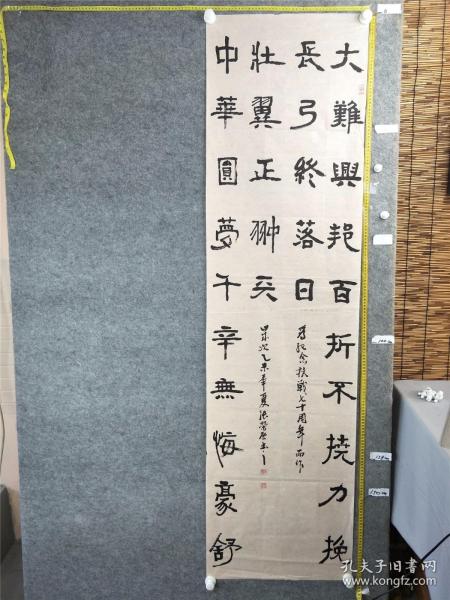 大難興邦百折不撓力挽
長弓終落日
為紀念抗戰七十周年而作
中華圓夢千辛無悔豪舒
壯翼正翀天
歲次乙未
孔夫子旧书网
www.kongfz.com